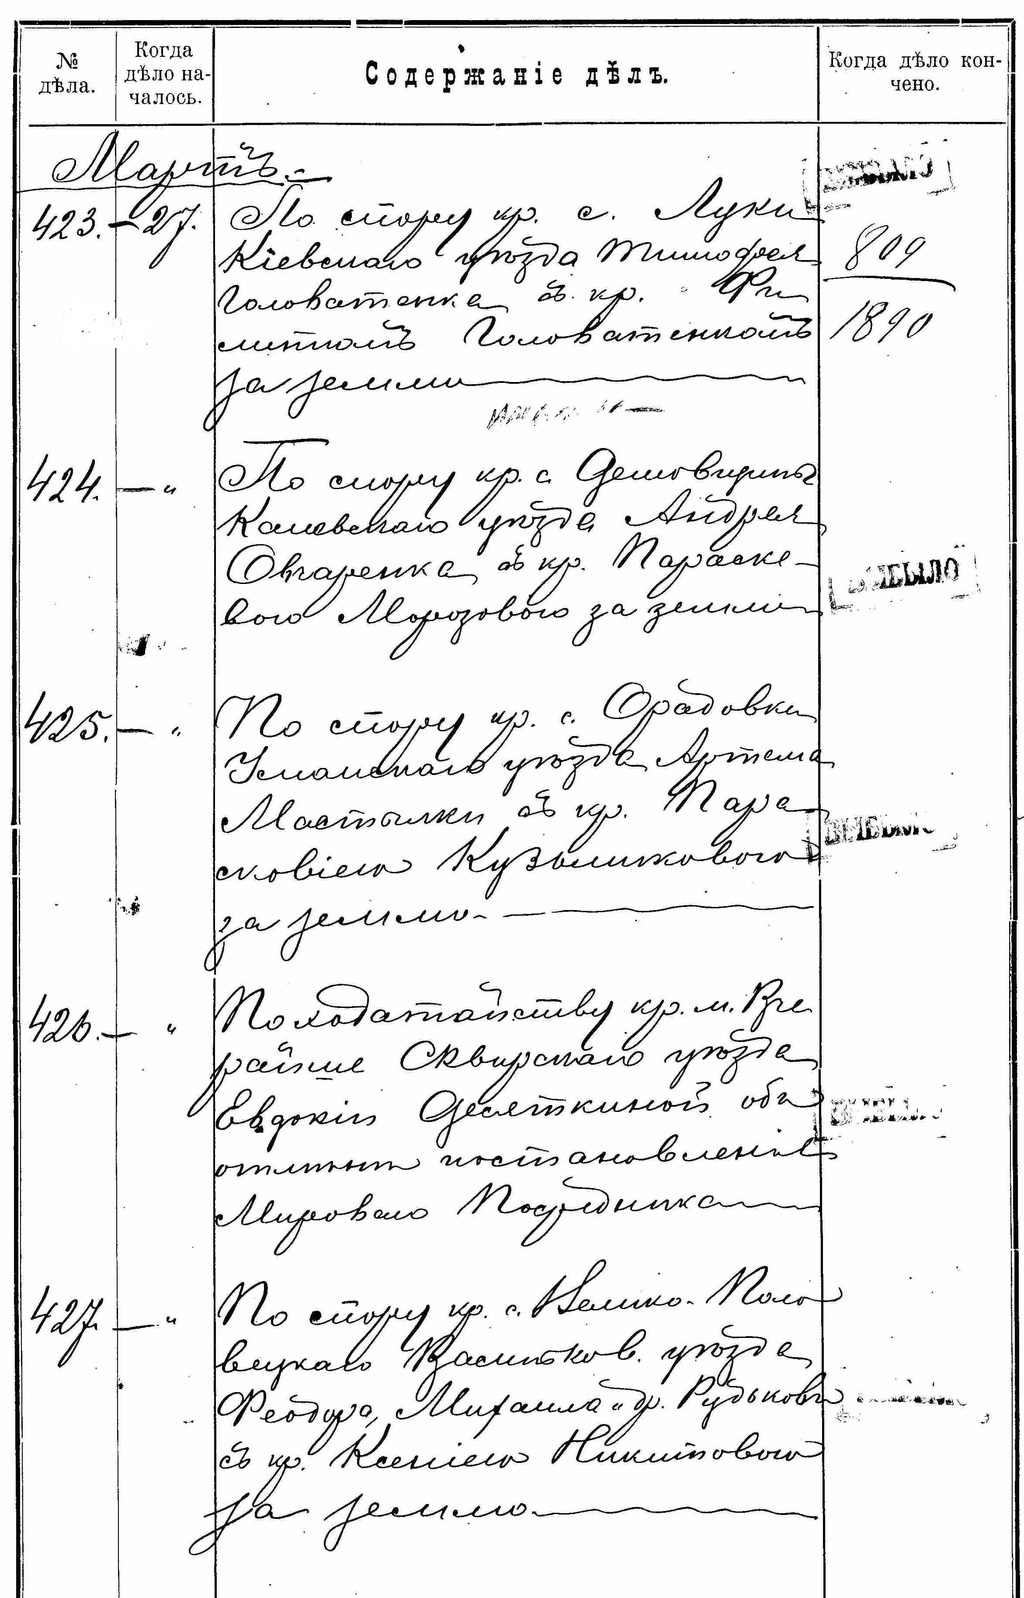 № дѣла.
Когда дѣло началось.
Содержаніе дѣлъ.
Когда дѣло кончено.
Мартъ.
423. — 27. По спору кр. с. Луки
Кіевскаго уѣзда Тимофея
809
Головатенка съ кр. Фи
липпомъ Головатенкомъ
1890
за землю
424. — " По спору кр. с.
Каневскаго уѣзда Андрея
Овчаренка съ кр. Параске-
ВЫБЫЛО
вою Морозовою за землю
425. — " По спору кр. с. Орадовки
Уманскаго уѣзда Артема
Мостылки съ кр. Пара-
ВЫБЫЛО
сковіею
за землю
426. — " По ходатайству кр. м. Вче
райше Сквирскаго уѣзда
Евдокіи Десяткиной объ
отмѣнѣ постановленія
Мироваго Посредника
427. — " По спору кр. с. Велико-Поло
вецкаго Васильков. уѣзда
Феодора, Михаила и др. Рудьковъ
съ кр. Ксеніею Никитовою
за землю